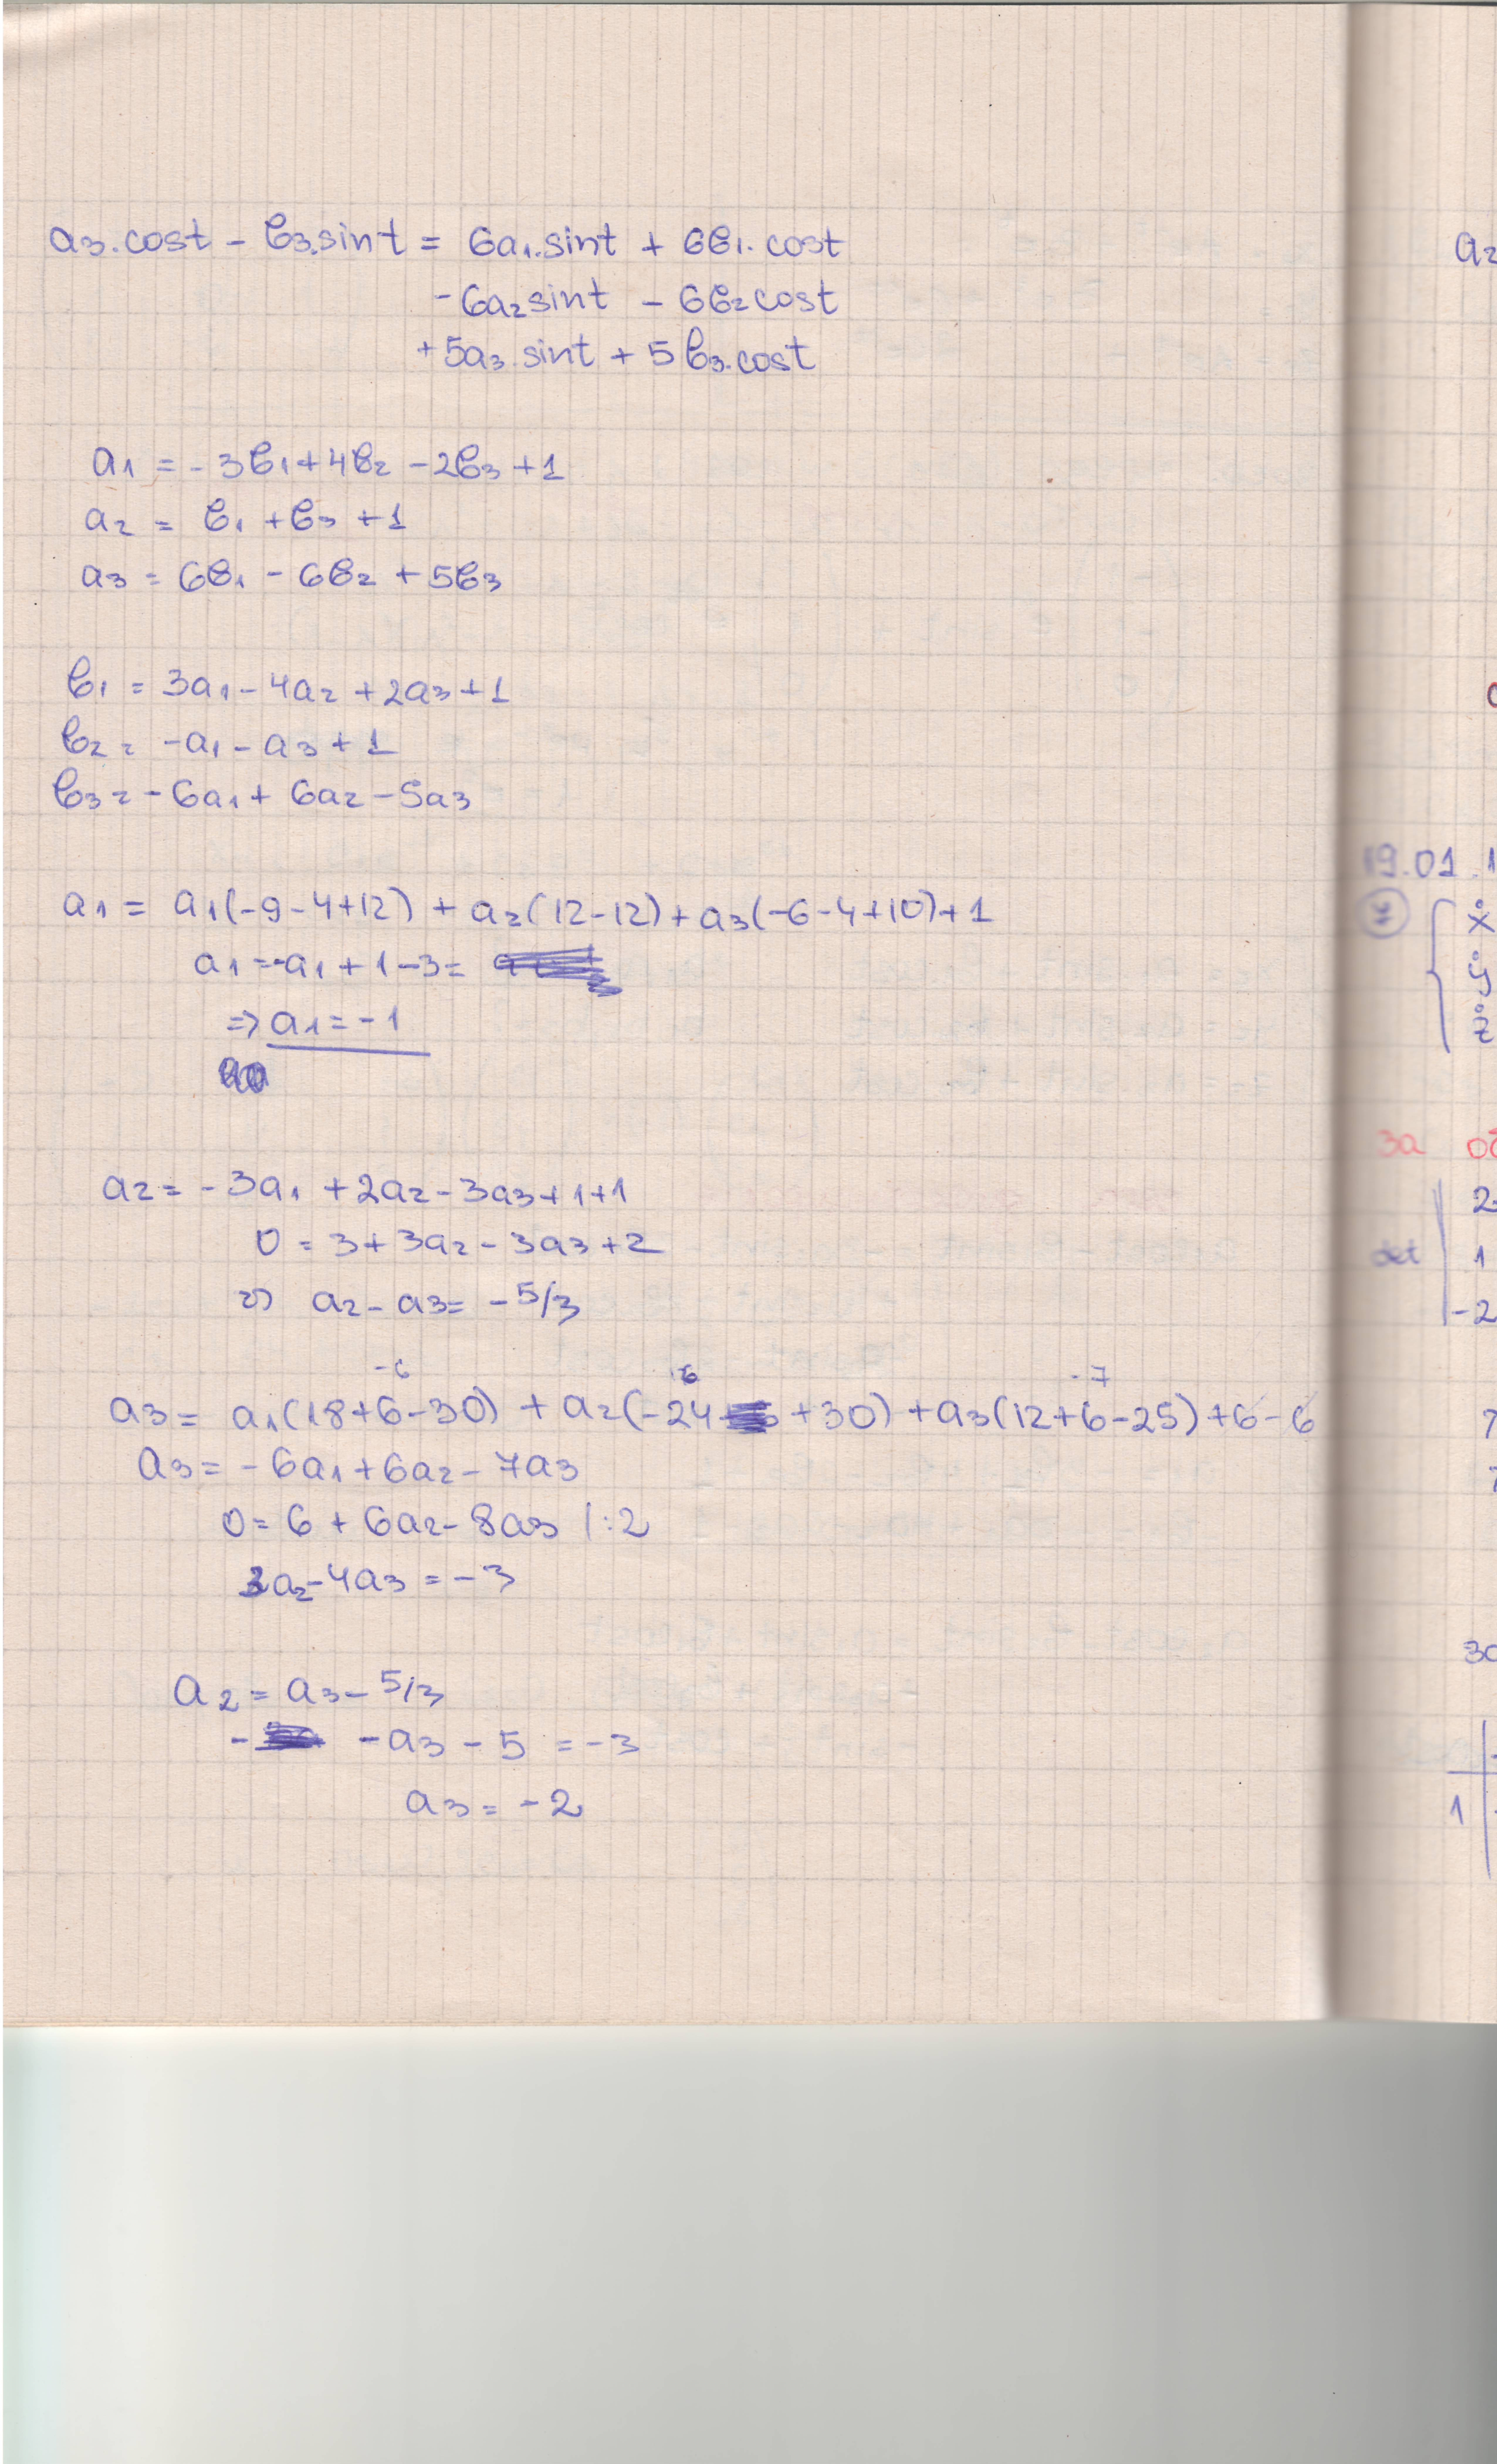 a₃.cost - b₃.sint = 6a₁.sint + 6b₁.cost
-6a₂sint - 6b₂cost
+5a₃.sint + 5b₃.cost
a₁ = -3b₁+4b₂ -2b₃ +1
a₂ = b₁ +b₃ +1
a₃ = 6b₁ - 6b₂ +5b₃
b₁ = 3a₁ - 4a₂ +2a₃+1
b₂ = -a₁ - a₃ + 1
b₃ = -6a₁ + 6a₂ -5a₃
a₁ = a₁(-9-4+12) + a₂(12-12)+a₃(-6-4+10)+1
a₁ = -a₁ + 1-3 =
=> a₁ = -1
a₂ = -3a₁ +2a₂ -3a₃+1+1
0 = 3+3a₂ - 3a₃+2
=> a₂ - a₃ = -5/3
-6 6 -7
a₃ = a₁(18+6-30) + a₂(-24 +30) +a₃(12+6-25)+6-6
a₃ = -6a₁+6a₂ - 7a₃
0 = 6 + 6a₂ - 8a₃ /:2
3a₂-4a₃ = -3
a₂ = a₃ - 5/3
- -a₃ - 5 = -3
a₃ = -2
a₂
19.01.1
ẋ
ẏ
ż
за
2
det 1
-2
1